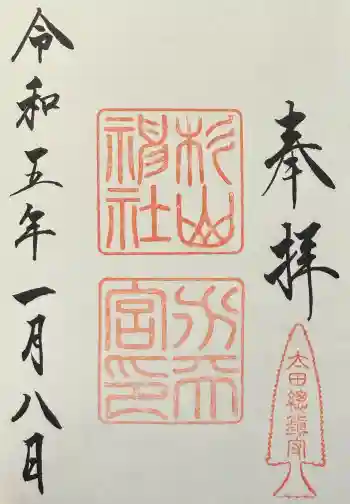 奉拝
太田總鎮守
杉山
神社
宮印
令和五年一月八日